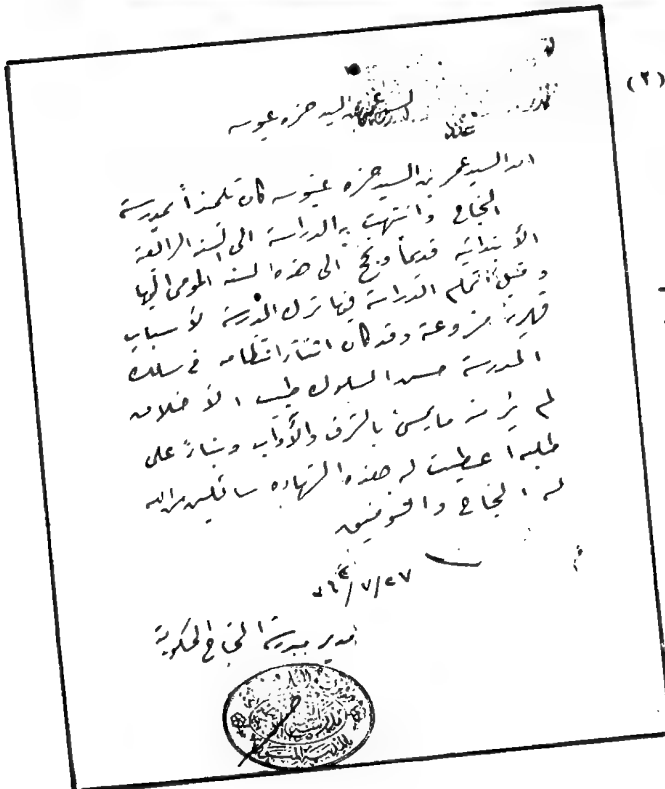 (٢)
السيد حمزه غبوسه
ان السيد عمر بن السيد حمزه غبوسه كان تلميذاً بمدرسة
النجاح وانتهت به الدراسة الى السنة الرابعة
الأبتدائية قديماً ونجح الى هذه السنة المومى اليها
وقبل اتمام الدراسة فيها ترك المدرسة لأسباب
قهرية مشروعة وقد كان اثناء انتظامه في سلك
المدرسة حسن السلوك طيب الأخلاق
لم ير منه ما يمس بالشرف والأداب وبناءً على
طلبه اعطيت له هذه الشهاده سائلين من الله
له النجاح والتوفيق
٢٧/٧/
مدير مدرسة النجاح الحكومية